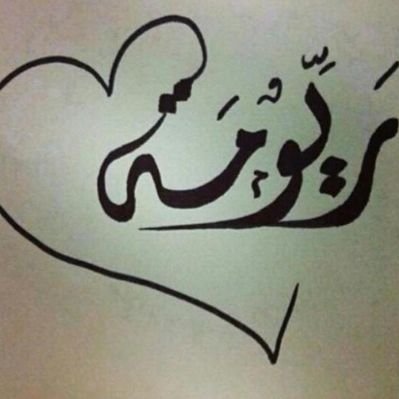 رَيِّوْمَة